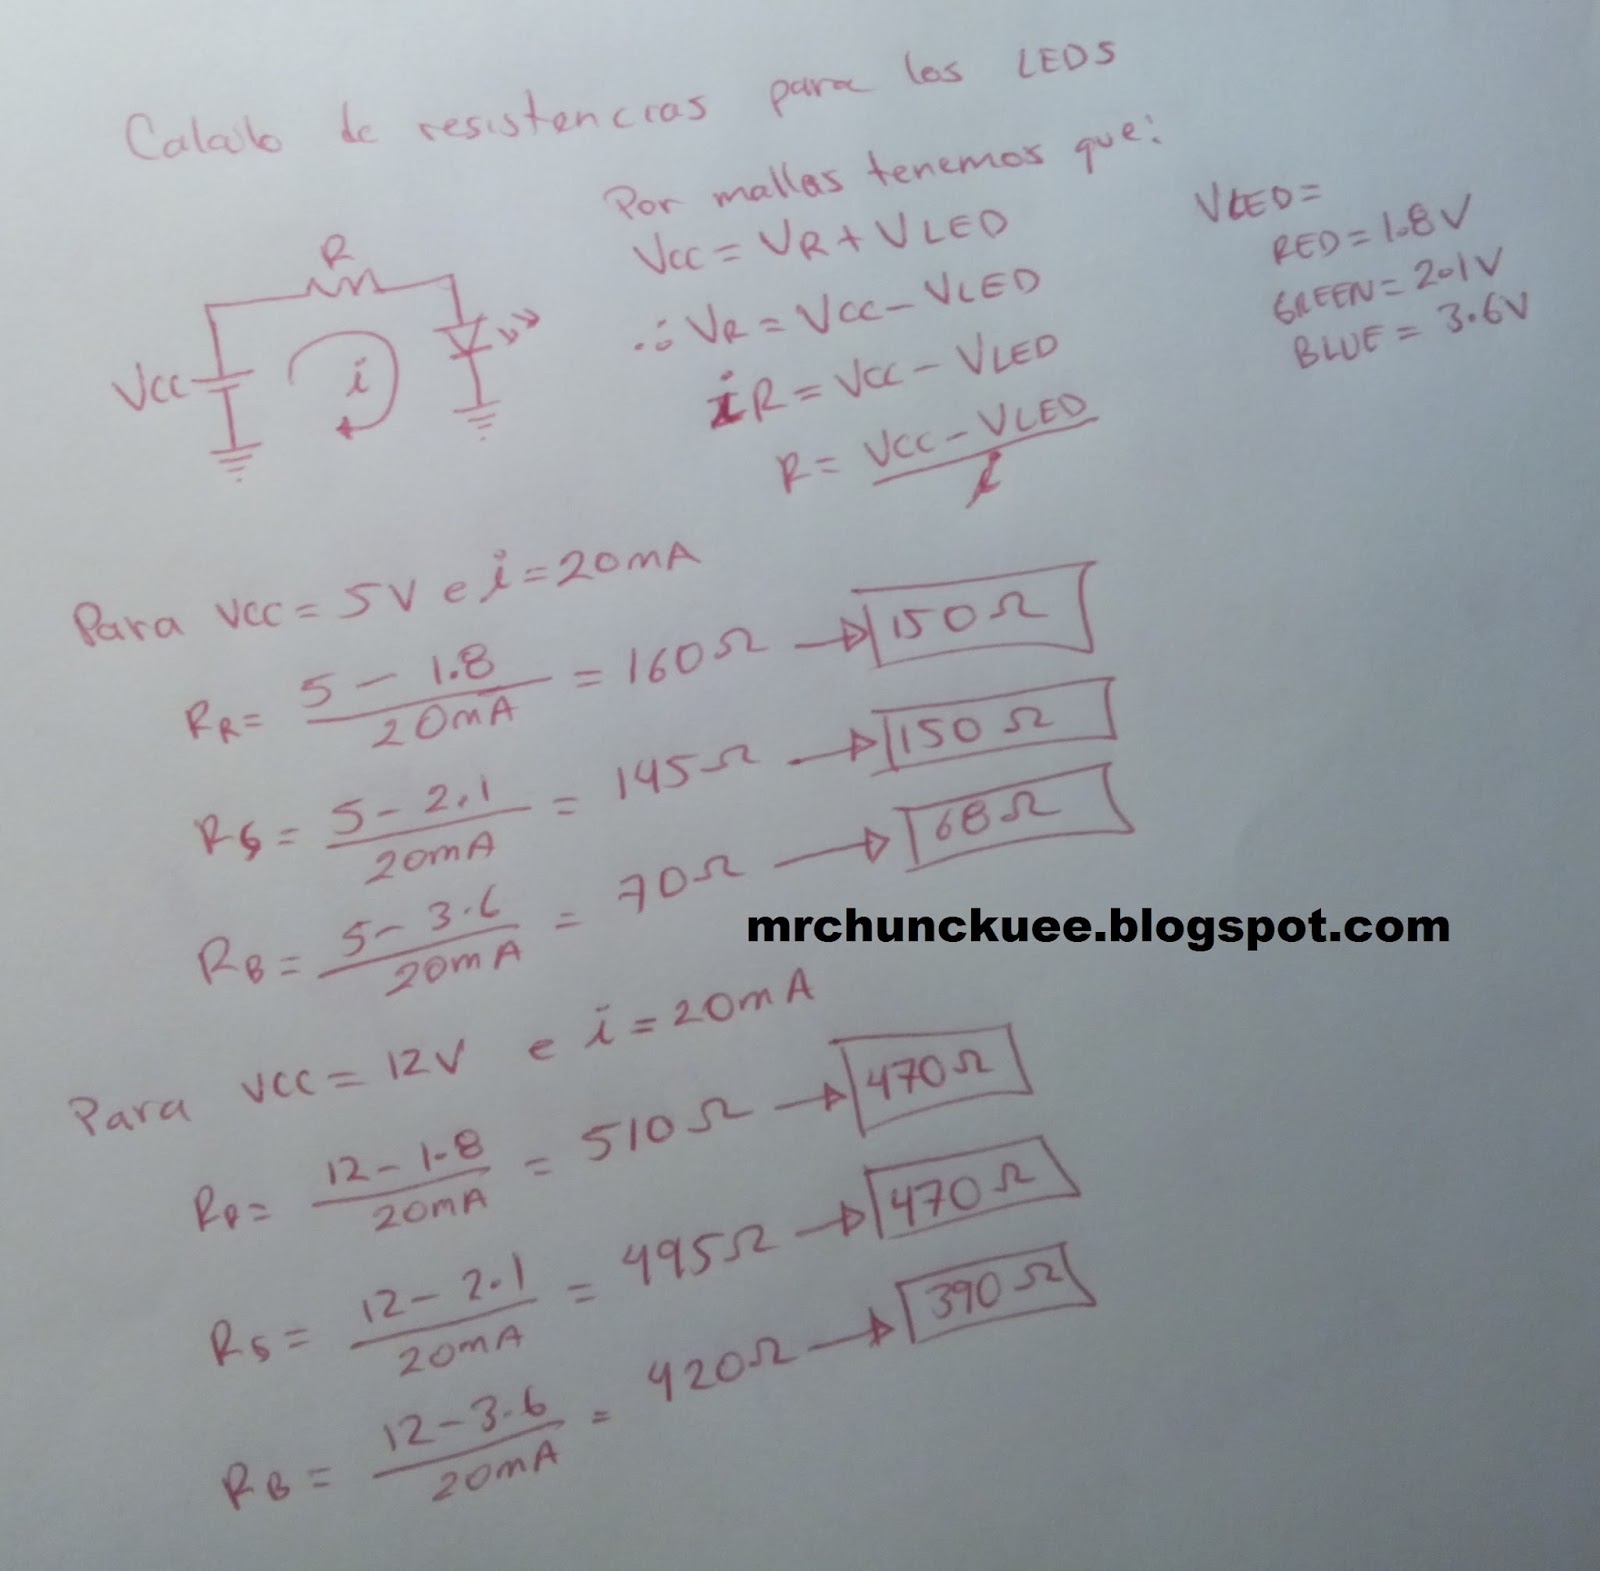 Calculo de resistencias para los LEDS
Por mallas tenemos que:
Vcc = VR + VLED
∴ VR = Vcc - VLED
iR = Vcc - VLED
R = Vcc - VLED / i
VLED =
RED = 1.8V
GREEN = 2.1V
BLUE = 3.6V
R
Vcc
i
Para Vcc = 5V e i = 20mA
RR = 5 - 1.8 / 20mA = 160Ω → 150Ω
RG = 5 - 2.1 / 20mA = 145Ω → 150Ω
RB = 5 - 3.6 / 20mA = 70Ω → 68Ω
mrchunckuee.blogspot.com
Para Vcc = 12V e i = 20mA
RR = 12 - 1.8 / 20mA = 510Ω → 470Ω
RG = 12 - 2.1 / 20mA = 495Ω → 470Ω
RB = 12 - 3.6 / 20mA = 420Ω → 390Ω